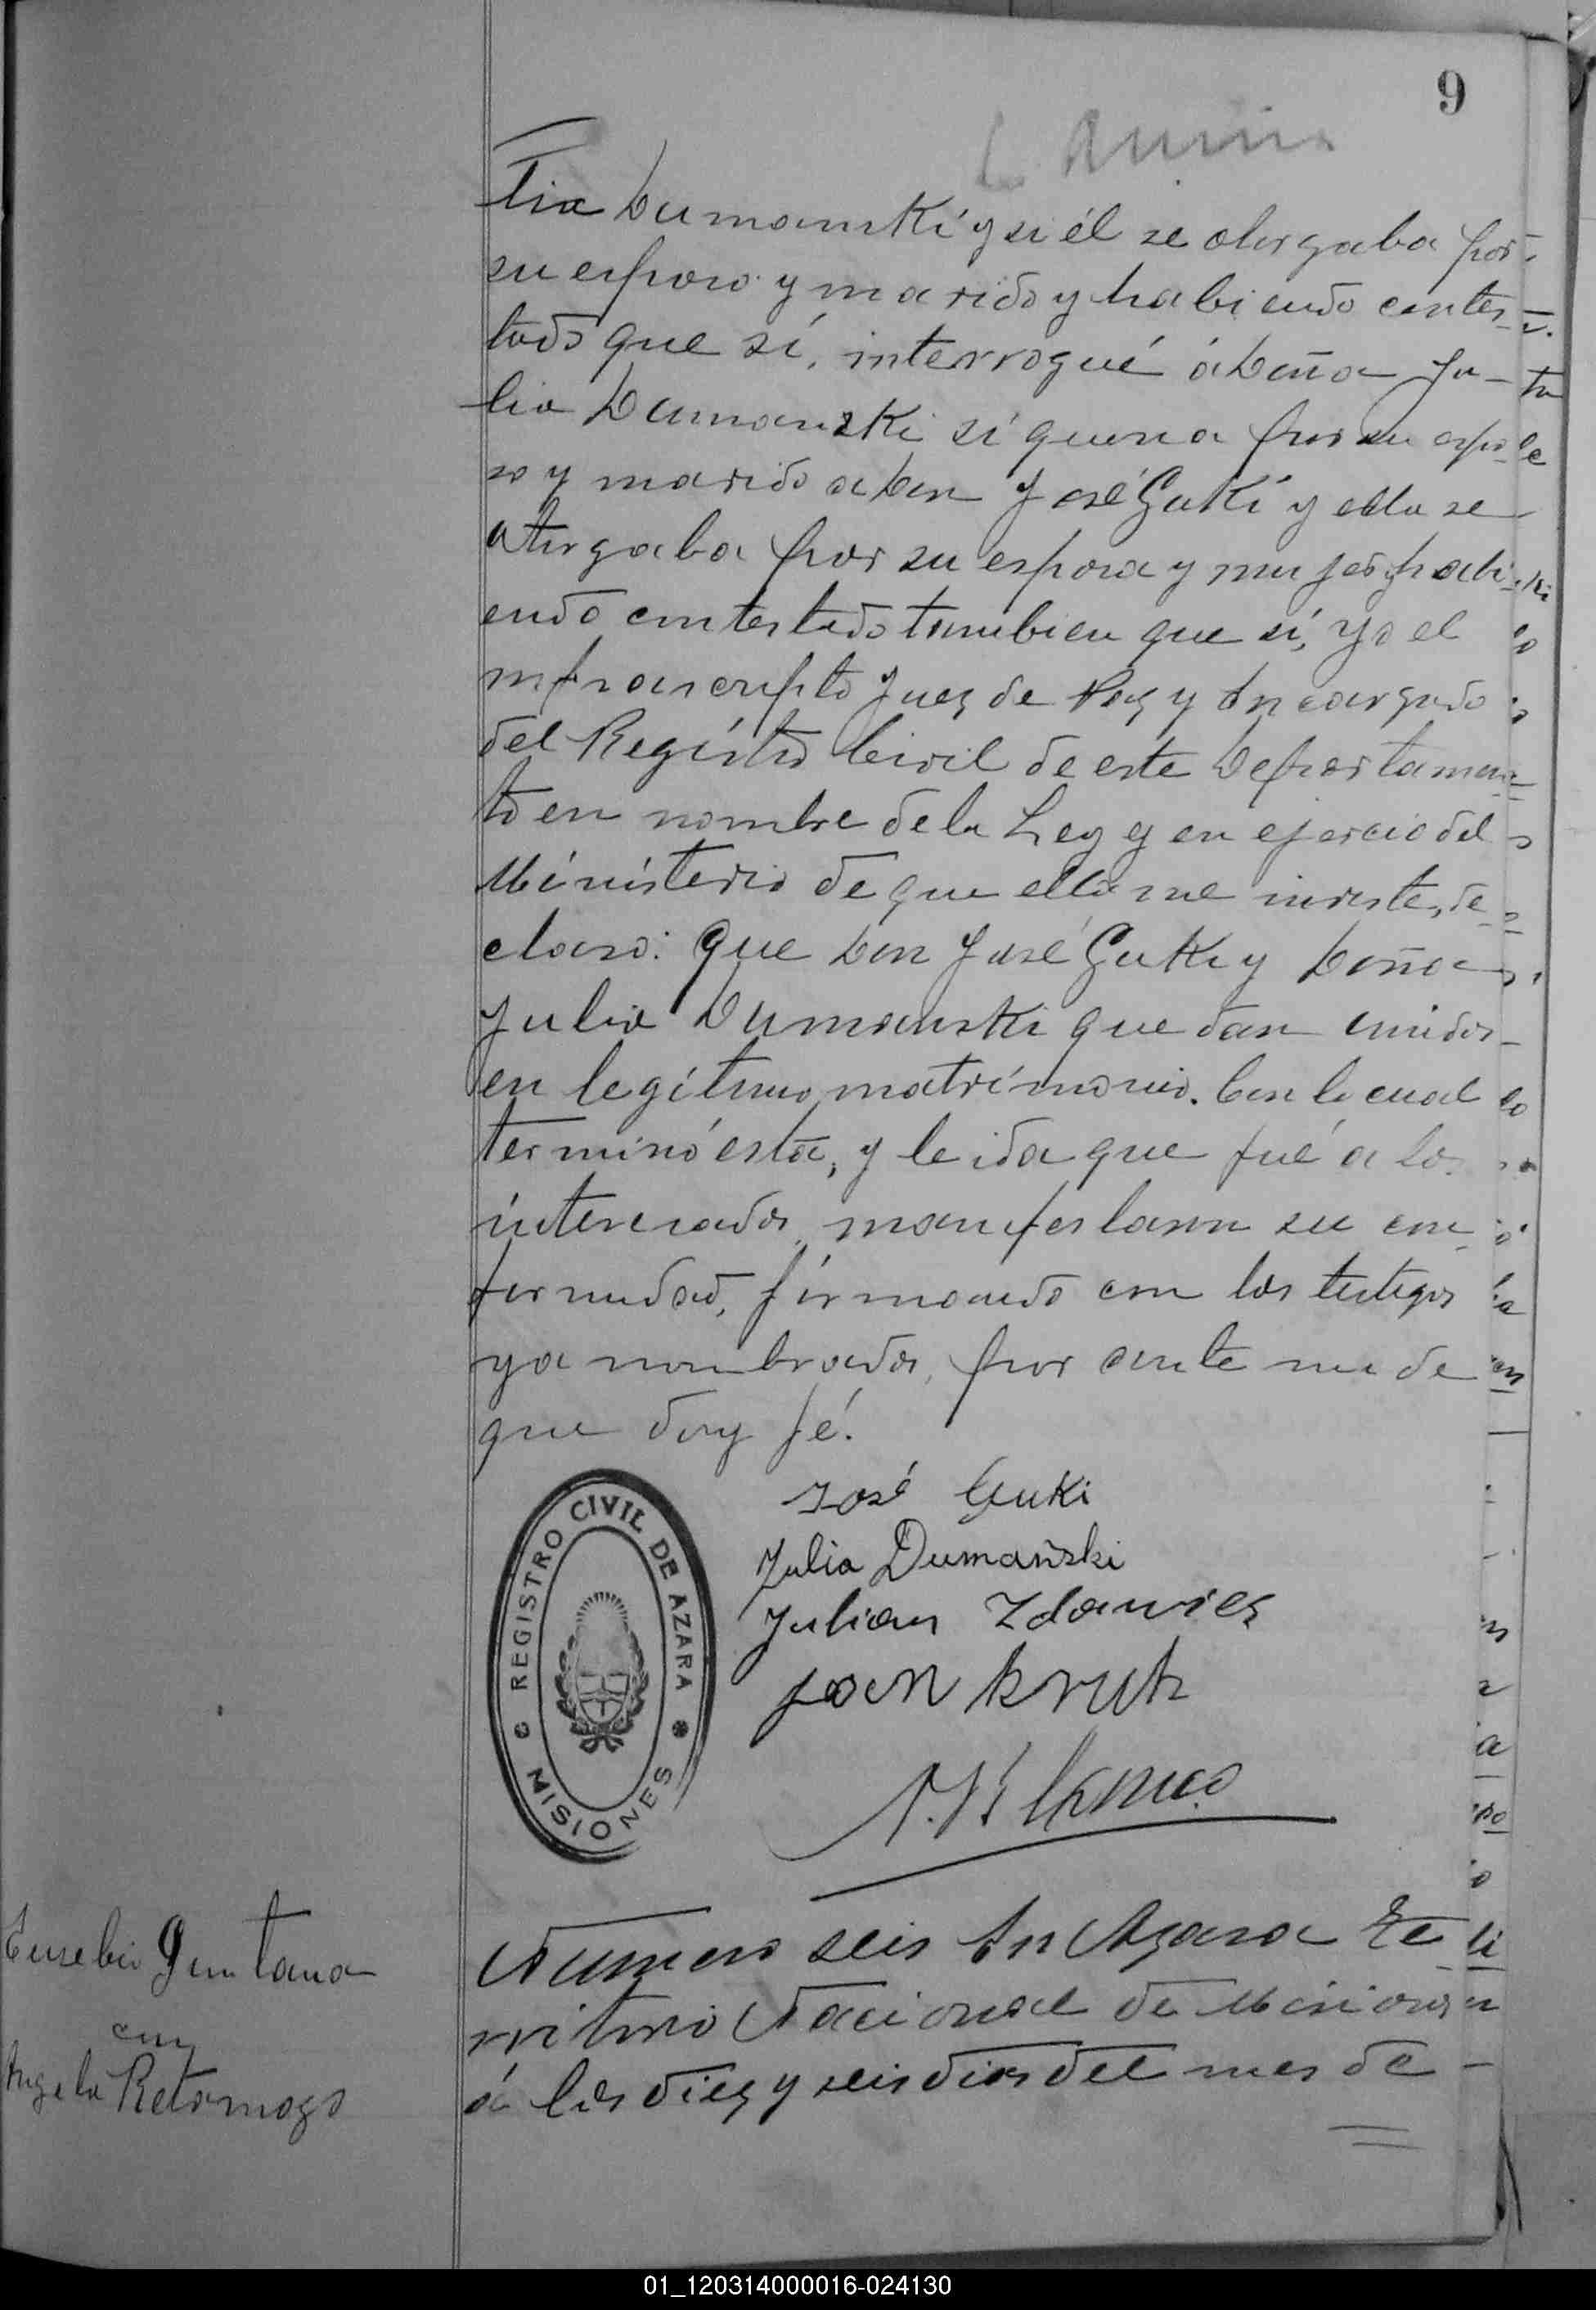 9
lia Dumanski y si él se otorgaba por
su esposo y marido y habiendo contes-
tado que sí, interrogué á Doña Ju-
lia Dumanski si queria por su espo-
so y marido a Don José Guki y ella se
otorgaba por su esposa y mujer, habi-
endo contestado tambien que sí, yo el
infrascripto Juez de Paz y Encargado
del Registro Civil de este Departamen-
to en nombre de la Ley y en ejercio del
Ministerio de que ella me inviste, de-
claro: Que Don José Guki y Doña
Julia Dumanski quedan unidos
en legítimo matrimonio. Con lo cual
terminó esta, y leida que fué a los
interesados, manifestaron su con-
formidad, firmando con los testigos
ya nombrados, por ante mi de
que doy fé.
José Guki
Julia Dumański
Julian Zdanvicz
Jan Kruk
REGISTRO CIVIL DE AZARA
MISIONES
Eusebio Quintana
con
Angela Retamozo
Numero seis En Azara Te-
rritorio Nacional de Misiones
á los diez y seis dias del mes de
01_120314000016-024130